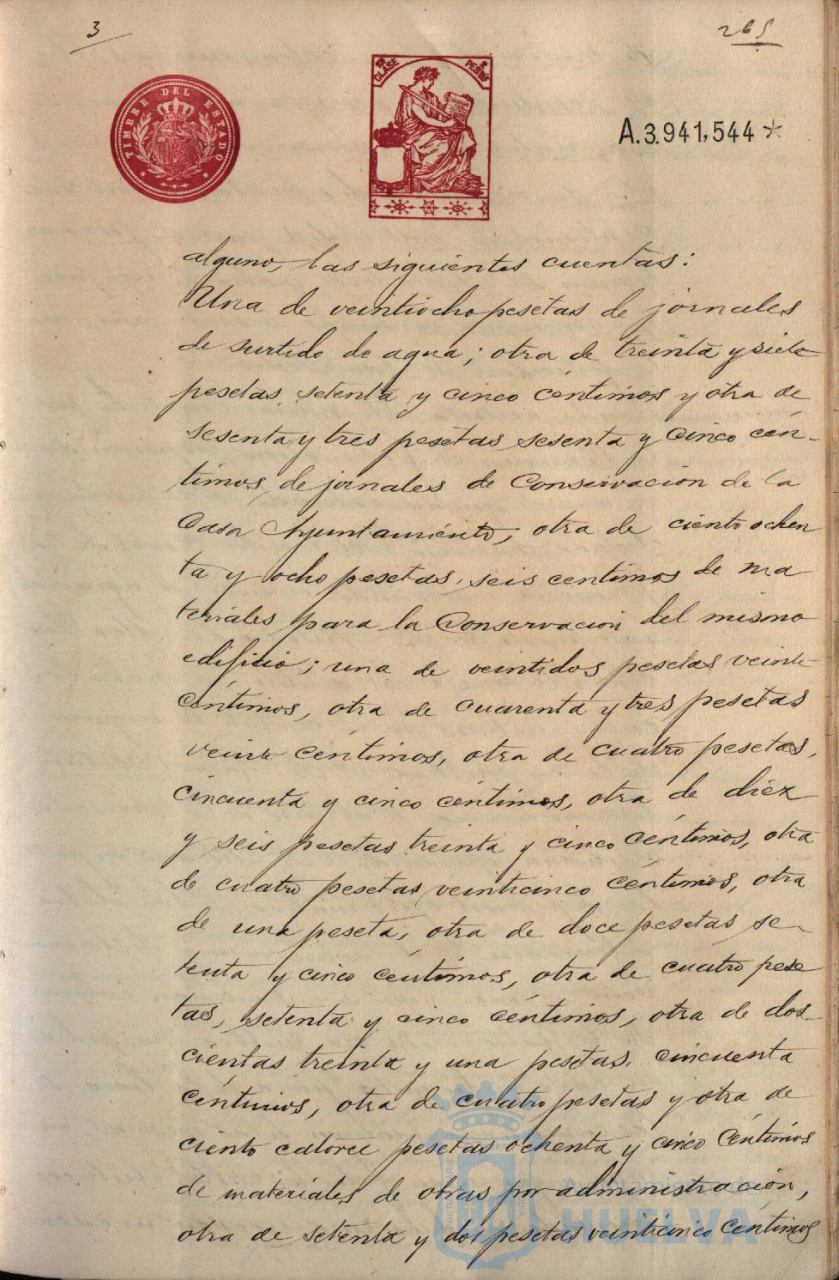 3
265
TIMBRE DEL ESTADO
CLASE
PESETAS
A.3.941,544*
alguno, las siguientes cuentas:
Una de veintiocho pesetas de jornales
de surtido de agua; otra de treinta y siete
pesetas, setenta y cinco céntimos y otra de
sesenta y tres pesetas, sesenta y cinco cén-
timos, de jornales de Conservación de la
Casa Ayuntamiento; otra de ciento ochen
ta y ocho pesetas, seis centimos de ma
teriales para la Conservación del mismo
edificio; una de veintidos pesetas veinte
céntimos, otra de cuarenta y tres pesetas
veinte céntimos, otra de cuatro pesetas,
cincuenta y cinco céntimos, otra de diez
y seis pesetas treinta y cinco céntimos, otra
de cuatro pesetas veinticinco céntimos, otra
de una peseta, otra de doce pesetas, se-
tenta y cinco céntimos, otra de cuatro pese
tas, setenta y cinco céntimos, otra de dos-
cientas treinta y una pesetas, cincuenta
céntimos, otra de cuatro pesetas y otra de
ciento catorce pesetas ochenta y cinco céntimos
de materiales de obras por administración,
otra de setenta y dos pesetas veinticinco céntimos
HUELVA